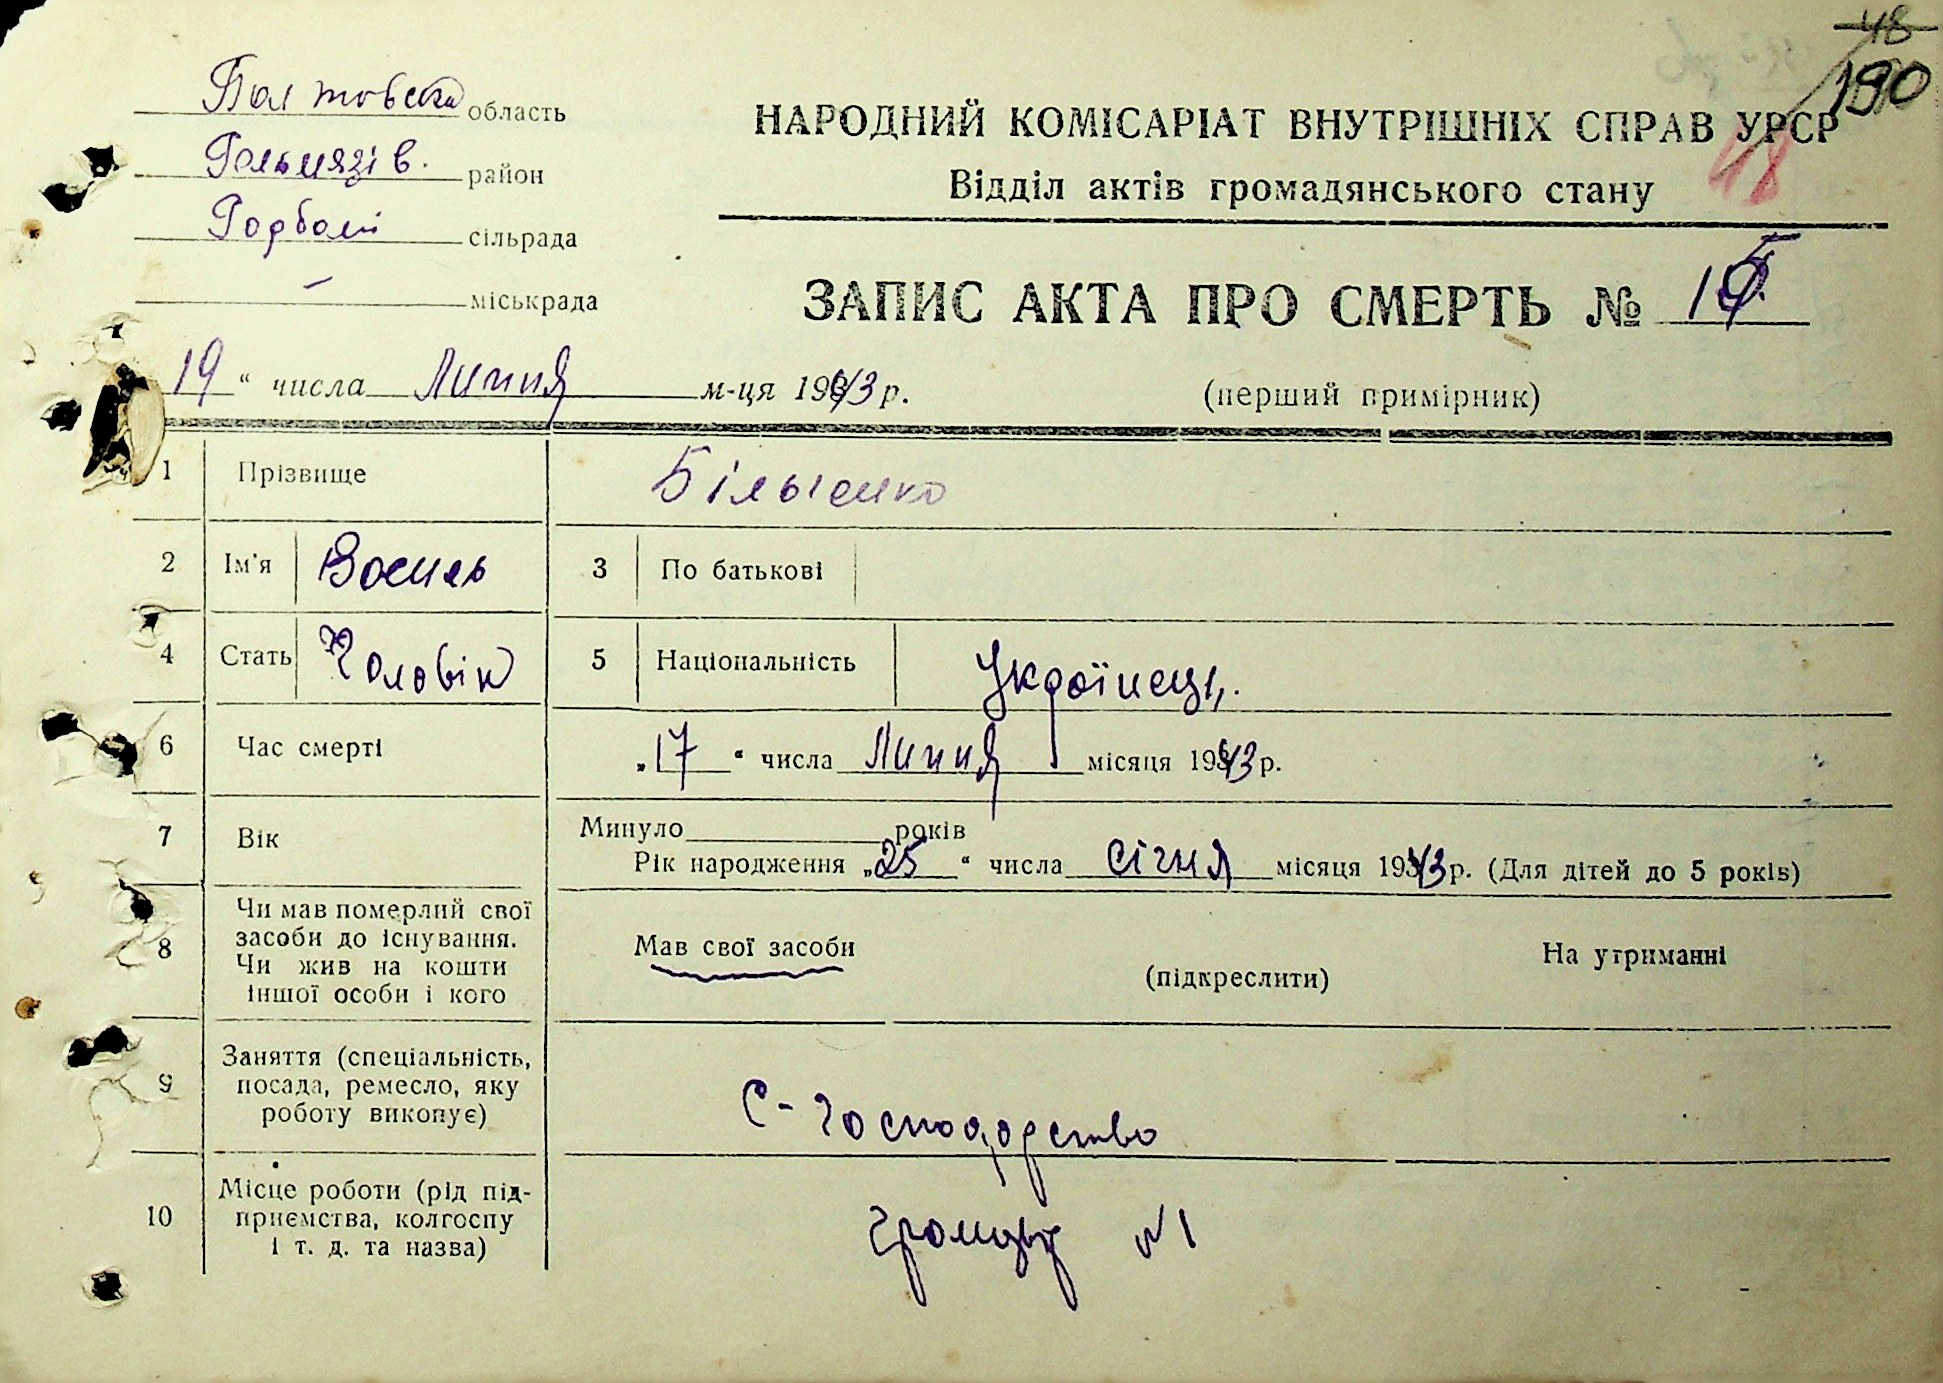 48
190
Полтовська область
НАРОДНИЙ КОМІСАРІАТ ВНУТРІШНІХ СПРАВ УРСР
48
Гельмязів. район
Відділ актів громадянського стану
сільрада
міськрада
ЗАПИС АКТА ПРО СМЕРТЬ №
19 “ числа Липня м-ця 1943 р.
(перший примірник)
1 Прізвище
2 Ім'я Василь 3 По батькові
4 Стать Чоловік 5 Національність Українець.
6 Час смерті „17“ числа Липня місяця 1943 р.
7 Вік Минуло років
Рік народження „25“ числа січня місяця 1943 р. (Для дітей до 5 років)
8 Чи мав померлий свої
засоби до існування.
Чи жив на кошти
іншої особи і кого
Мав свої засоби (підкреслити) На утриманні
9 Заняття (спеціальність,
посада, ремесло, яку
роботу виконує)
С-господарство
10 Місце роботи (рід під-
приємства, колгоспу
і т. д. та назва)
№1